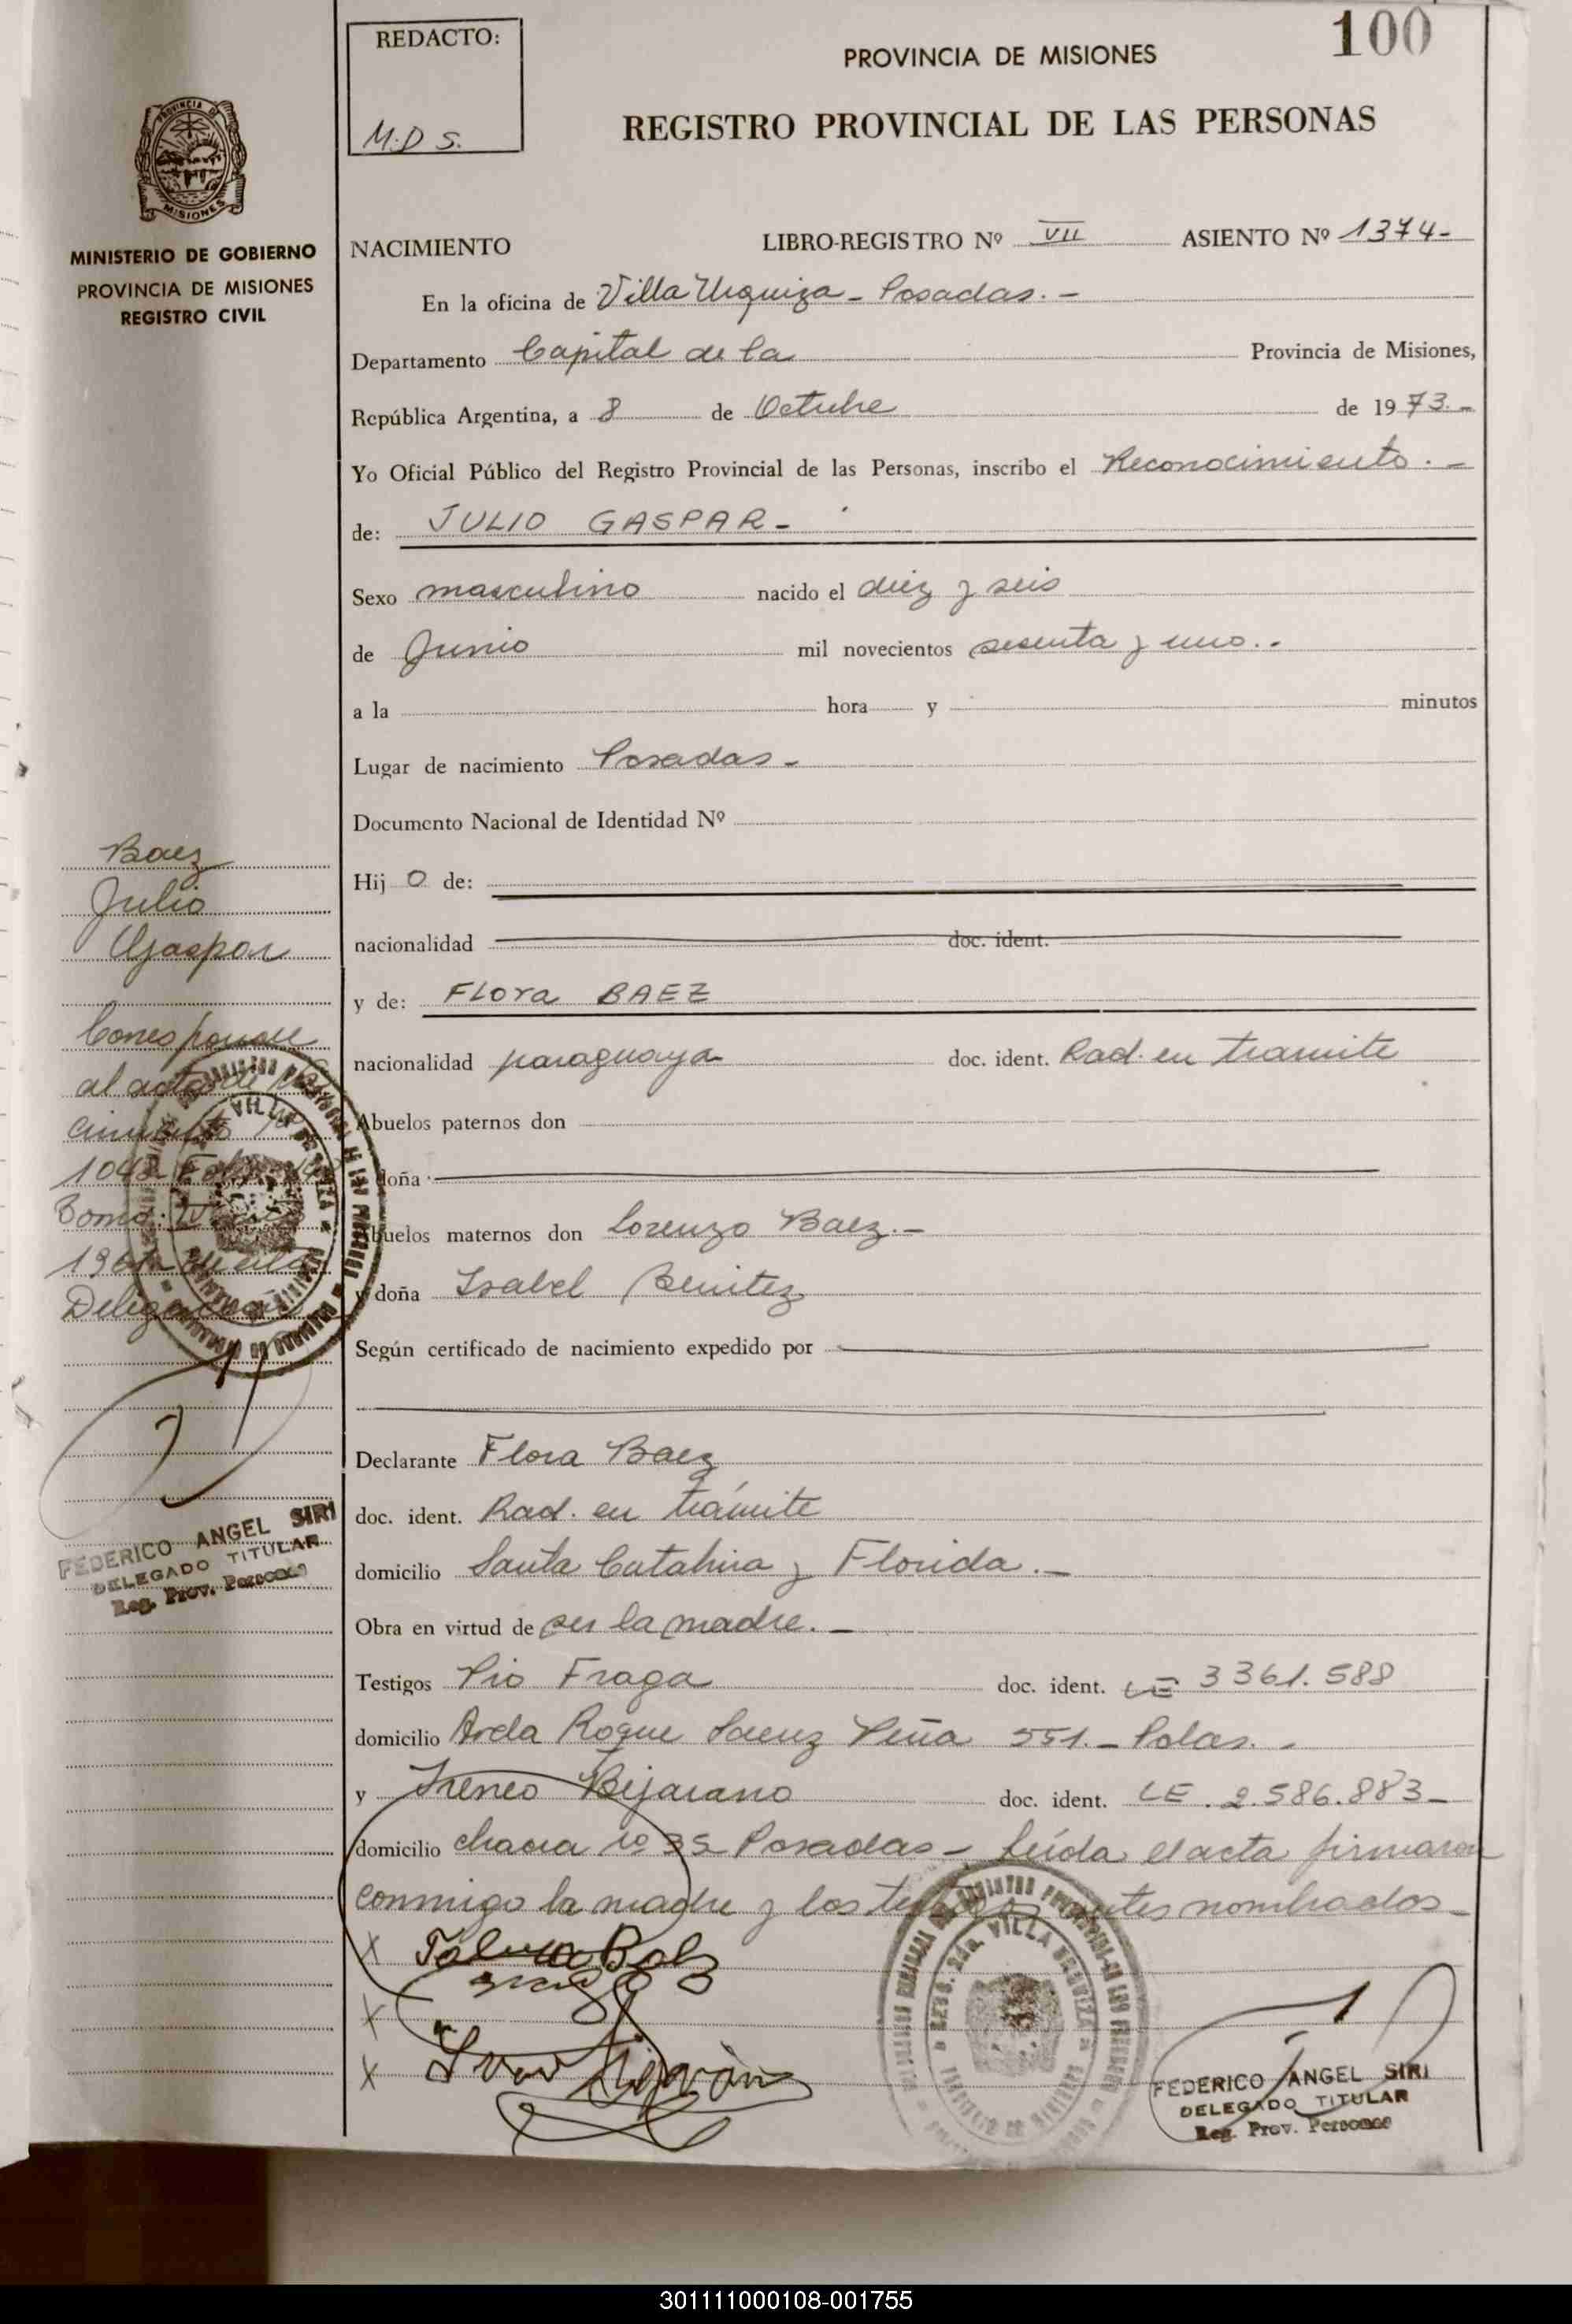 100
REDACTO:
M.D S.
PROVINCIA DE MISIONES
REGISTRO PROVINCIAL DE LAS PERSONAS
PROVINCIA DE
MISIONES
MINISTERIO DE GOBIERNO
PROVINCIA DE MISIONES
REGISTRO CIVIL
NACIMIENTO LIBRO-REGISTRO Nº VII ASIENTO Nº 1374-
En la oficina de Villa Urquiza - Posadas. -
Departamento Capital de la Provincia de Misiones,
República Argentina, a 8 de Octubre de 1973.-
Yo Oficial Público del Registro Provincial de las Personas, inscribo el Reconocimiento. -
de: JULIO GASPAR -
Sexo masculino nacido el diez y seis
de Junio mil novecientos sesenta y uno. -
a la hora y minutos
Lugar de nacimiento Posadas -
Documento Nacional de Identidad Nº
Hij o de:
nacionalidad doc. ident.
y de: FLora BAEZ
nacionalidad paraguaya doc. ident. Rad. en tramite
Abuelos paternos don
doña
Abuelos maternos don Lorenzo Baez. -
y doña Isabel Benitez
Según certificado de nacimiento expedido por
Declarante Flora Baez
doc. ident. Rad. en trámite
domicilio Santa Catalina y Florida. -
Obra en virtud de ser la madre. -
Testigos Pio Fraga doc. ident. LE 3361.588
domicilio Avda Roque Saenz Peña 551. - Pdas. -
y Ireneo Bejarano doc. ident. LE. 2.586.883-
domicilio chacra nº 35 Posadas - Leída el acta firmaron
conmigo la madre y los testigos antes nombrados -
X
X
X
Baez
Julio
Gaspar
Corresponde
al acta de
1961
Delegación
FEDERICO ANGEL SIRI
DELEGADO TITULAR
Reg. Prov. Personas
VILLA URQUIZA
FEDERICO ANGEL SIRI
DELEGADO TITULAR
Reg. Prov. Personas
301111000108-001755